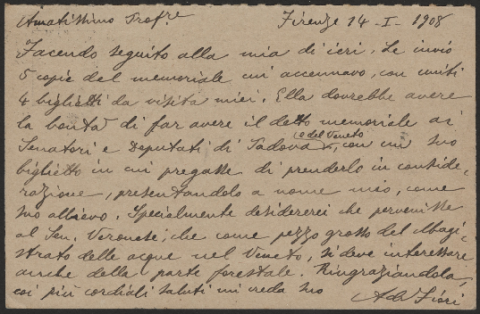 Amatissimo Prof.re Firenze 14-I-1908
Facendo seguito alla mia di ieri, Le invio
5 copie del memoriale cui accennavo, con uniti
4 biglietti da visita miei. Ella dovrebbe avere
la bontà di far avere il detto memoriale ai
e del Veneto
Senatori e Deputati di Padova, con un suo
biglietto in cui pregasse di prenderlo in conside-
razione, presentandolo a nome mio, come
suo allievo. Specialmente desidererei che pervenisse
al Sen. Veronese, che come pezzo grosso del Magi-
strato delle acque nel Veneto, si deve interessare
anche della parte forestale. Ringraziandola,
coi più cordiali saluti mi creda suo
A de Fiori